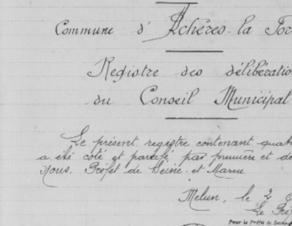 Commune d' Achères-la-For
Registre des délibération
du Conseil Municipal
Le présent registre contenant quat
a été coté et paraphé par première et de
nous, Préfet de Seine-et-Marne
Melun, le 2
Le Préf
Pour le Préfet de Seine